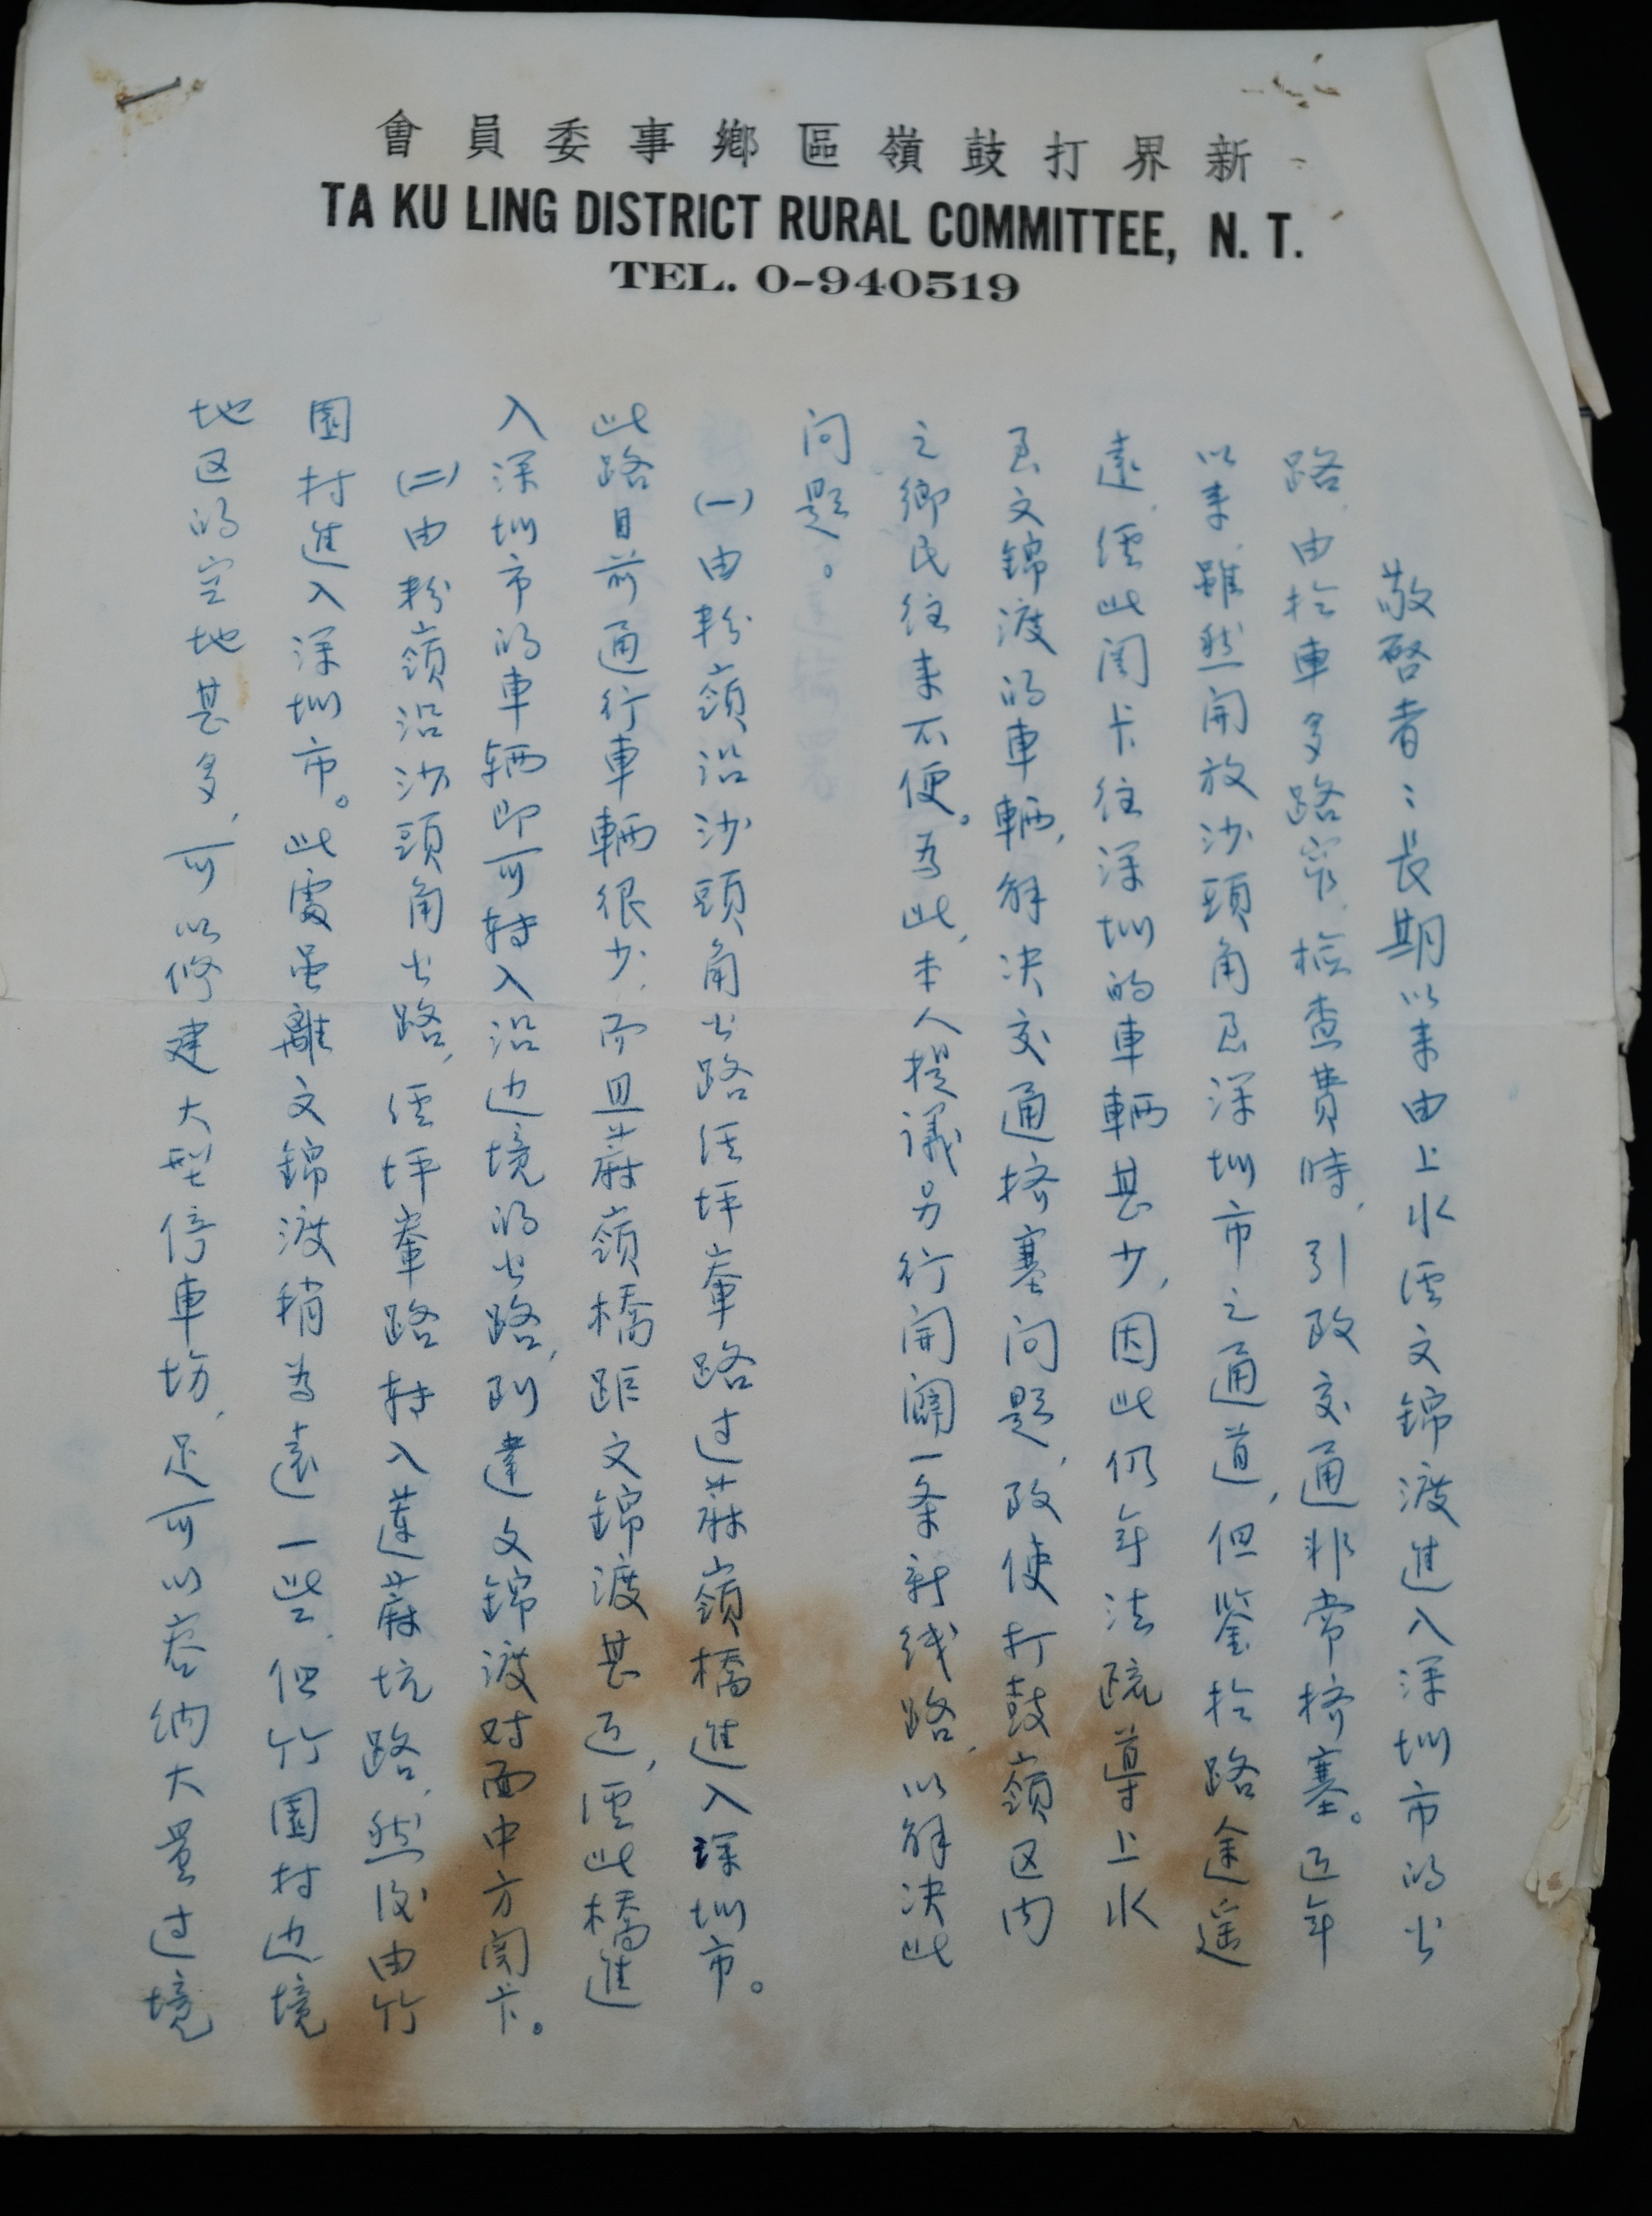 新界打鼓嶺區鄉事委員會
TA KU LING DISTRICT RURAL COMMITTEE, N. T.
TEL. 0-940519
敬啓者：長期以来由上水经文錦渡進入深圳市的公
路，由於車多路窄，檢查費時，引致交通非常挤塞。近年
以来，雖然開放沙頭角至深圳市之通道，但鉴於路途遥
遠，经此関卡往深圳的車輛甚少，因此仍無法疏導上水
至文錦渡的車輛，解决交通挤塞问題，致使打鼓嶺区内
之鄉民往来不便。為此，本人提議另行開闢一条新线路，以解决此
问題。
(一)由粉嶺沿沙頭角公路经坪輋路过蔴嶺橋進入深圳市。
此路目前通行車輛很少，而且蔴嶺橋距文錦渡甚近，经此橋進
入深圳市的車辆即可转入沿边境的公路，到達文錦渡对面中方関卡。
(二)由粉嶺沿沙頭角公路，经坪輋路转入蓮蔴坑路，然後由竹
園村進入深圳市。此處虽離文錦渡稍為遠一些，但竹園村边境
地区的空地甚多，可以修建大型停車场，足可以容纳大量过境